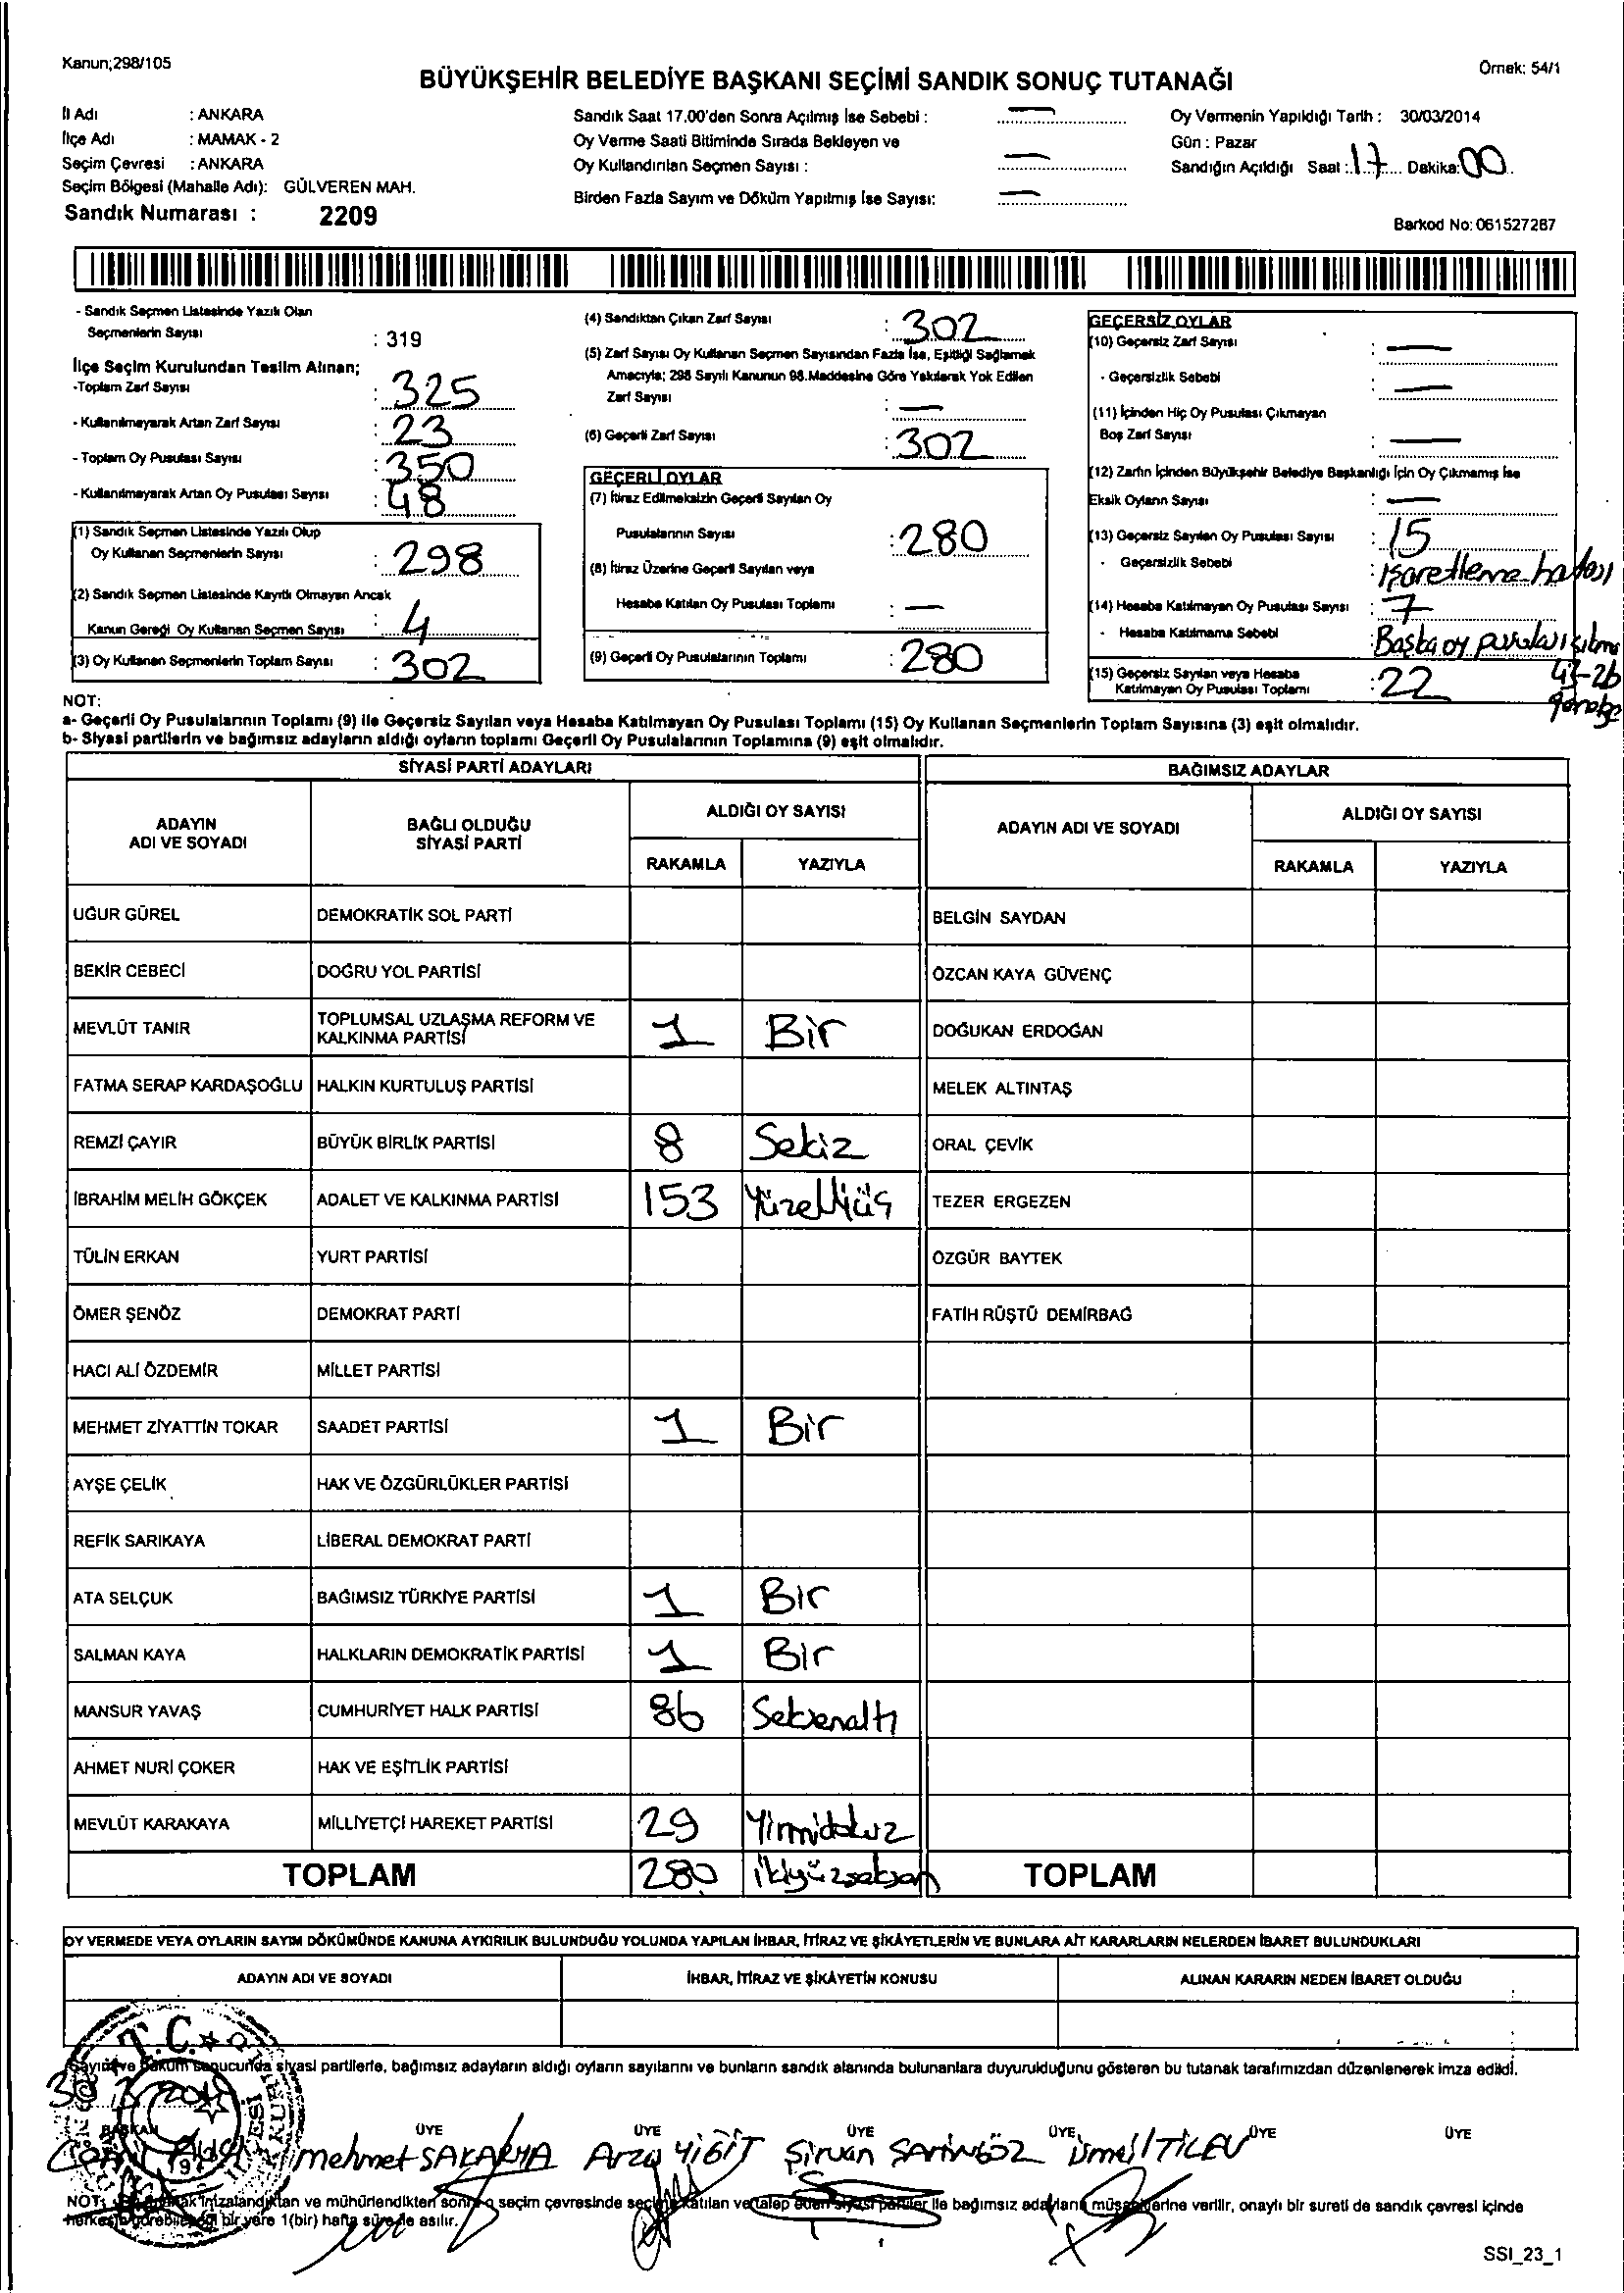 Kanun;298/105
Örnek: 54/1
BÜYÜKŞEHİR BELEDİYE BAŞKANI SEÇİMİ SANDIK SONUÇ TUTANAĞI
İl Adı : ANKARA
İlçe Adı : MAMAK - 2
Seçim Çevresi : ANKARA
Seçim Bölgesi (Mahalle Adı): GÜLVEREN MAH.
Sandık Numarası : 2209
Sandık Saat 17.00'den Sonra Açılmış İse Sebebi : —
Oy Verme Saati Bitiminde Sırada Bekleyen ve
Oy Kullandırılan Seçmen Sayısı : —
Birden Fazla Sayım ve Döküm Yapılmış İse Sayısı: —
Oy Vermenin Yapıldığı Tarih : 30/03/2014
Gün : Pazar
Sandığın Açıldığı Saat : 17 Dakika: 00
Barkod No: 061527287
- Sandık Seçmen Listesinde Yazılı Olan
Seçmenlerin Sayısı : 319
İlçe Seçim Kurulundan Teslim Alınan;
-Toplam Zarf Sayısı : 325
- Kullanılmayarak Artan Zarf Sayısı : 23
- Toplam Oy Pusulası Sayısı : 350
- Kullanılmayarak Artan Oy Pusulası Sayısı : 48
(1) Sandık Seçmen Listesinde Yazılı Olup
Oy Kullanan Seçmenlerin Sayısı : 298
(2) Sandık Seçmen Listesinde Kayıtlı Olmayan Ancak
Kanun Gereği Oy Kullanan Seçmen Sayısı : 4
(3) Oy Kullanan Seçmenlerin Toplam Sayısı : 302
(4) Sandıktan Çıkan Zarf Sayısı : 302
(5) Zarf Sayısı Oy Kullanan Seçmen Sayısından Fazla İse, Eşitliği Sağlamak
Amacıyla; 298 Sayılı Kanunun 98.Maddesine Göre Yakılarak Yok Edilen
Zarf Sayısı : —
(6) Geçerli Zarf Sayısı : 302
GEÇERLİ OYLAR
(7) İtiraz Edilmeksizin Geçerli Sayılan Oy
Pusulalarının Sayısı : 280
(8) İtiraz Üzerine Geçerli Sayılan veya
Hesaba Katılan Oy Pusulası Toplamı : —
(9) Geçerli Oy Pusulalarının Toplamı : 280
GEÇERSİZ OYLAR
(10) Geçersiz Zarf Sayısı : —
- Geçersizlik Sebebi : —
(11) İçinden Hiç Oy Pusulası Çıkmayan
Boş Zarf Sayısı : —
(12) Zarfın İçinden Büyükşehir Belediye Başkanlığı İçin Oy Çıkmamış İse
Eksik Oyların Sayısı : —
(13) Geçersiz Sayılan Oy Pusulası Sayısı : 15
- Geçersizlik Sebebi : işaretleme hatası
(14) Hesaba Katılmayan Oy Pusulası Sayısı : 7
- Hesaba Katılmama Sebebi : Başka oy pusulası
43-2b
(15) Geçersiz Sayılan veya Hesaba
Katılmayan Oy Pusulası Toplamı : 22
NOT:
a- Geçerli Oy Pusulalarının Toplamı (9) ile Geçersiz Sayılan veya Hesaba Katılmayan Oy Pusulası Toplamı (15) Oy Kullanan Seçmenlerin Toplam Sayısına (3) eşit olmalıdır.
b- Siyasi partilerin ve bağımsız adayların aldığı oyların toplamı Geçerli Oy Pusulalarının Toplamına (9) eşit olmalıdır.
SİYASİ PARTİ ADAYLARI
BAĞIMSIZ ADAYLAR
ADAYIN
ADI VE SOYADI
BAĞLI OLDUĞU
SİYASİ PARTİ
ALDIĞI OY SAYISI
RAKAMLA YAZIYLA
ADAYIN ADI VE SOYADI
ALDIĞI OY SAYISI
RAKAMLA YAZIYLA
UĞUR GÜREL DEMOKRATİK SOL PARTİ BELGİN SAYDAN
BEKİR CEBECİ DOĞRU YOL PARTİSİ ÖZCAN KAYA GÜVENÇ
MEVLÜT TANIR TOPLUMSAL UZLAŞMA REFORM VE
KALKINMA PARTİSİ 1 Bir DOĞUKAN ERDOĞAN
FATMA SERAP KARDAŞOĞLU HALKIN KURTULUŞ PARTİSİ MELEK ALTINTAŞ
REMZİ ÇAYIR BÜYÜK BİRLİK PARTİSİ 8 Sekiz ORAL ÇEVİK
İBRAHİM MELİH GÖKÇEK ADALET VE KALKINMA PARTİSİ 153 Yüzelliüç TEZER ERGEZEN
TÜLİN ERKAN YURT PARTİSİ ÖZGÜR BAYTEK
ÖMER ŞENÖZ DEMOKRAT PARTİ FATİH RÜŞTÜ DEMİRBAĞ
HACI ALİ ÖZDEMİR MİLLET PARTİSİ
MEHMET ZİYATTİN TOKAR SAADET PARTİSİ 1 Bir
AYŞE ÇELİK HAK VE ÖZGÜRLÜKLER PARTİSİ
REFİK SARIKAYA LİBERAL DEMOKRAT PARTİ
ATA SELÇUK BAĞIMSIZ TÜRKİYE PARTİSİ 1 Bir
SALMAN KAYA HALKLARIN DEMOKRATİK PARTİSİ 1 Bir
MANSUR YAVAŞ CUMHURİYET HALK PARTİSİ 86 Seksenaltı
AHMET NURİ ÇOKER HAK VE EŞİTLİK PARTİSİ
MEVLÜT KARAKAYA MİLLİYETÇİ HAREKET PARTİSİ 29 Yirmidokuz
TOPLAM 280 ikiyüzseksen TOPLAM
OY VERMEDE VEYA OYLARIN SAYIM DÖKÜMÜNDE KANUNA AYKIRILIK BULUNDUĞU YOLUNDA YAPILAN İHBAR, İTİRAZ VE ŞİKÂYETLERİN VE BUNLARA AİT KARARLARIN NELERDEN İBARET BULUNDUKLARI
ADAYIN ADI VE SOYADI İHBAR, İTİRAZ VE ŞİKÂYETİN KONUSU ALINAN KARARIN NEDEN İBARET OLDUĞU
T.C.
Sayım ve döküm sonucunda siyasi partilerle, bağımsız adayların aldığı oyların sayılarını ve bunların sandık alanında bulunanlara duyurulduğunu gösteren bu tutanak tarafımızdan düzenlenerek imza edildi.
BAŞKAN ÜYE ÜYE ÜYE ÜYE ÜYE ÜYE
mehmet SAKARYA Arzu YİĞİT Şirvan SARIGÖZ ismail TİLEV
NOT: Bu tutanak imzalandıktan ve mühürlendikten sonra o seçim çevresinde seçime katılan ve talep eden siyasi partiler ile bağımsız adayların müşahitlerine verilir, onaylı bir sureti de sandık çevresi içinde
herkesin görebileceği bir yere 1(bir) hafta süre ile asılır.
SSI_23_1